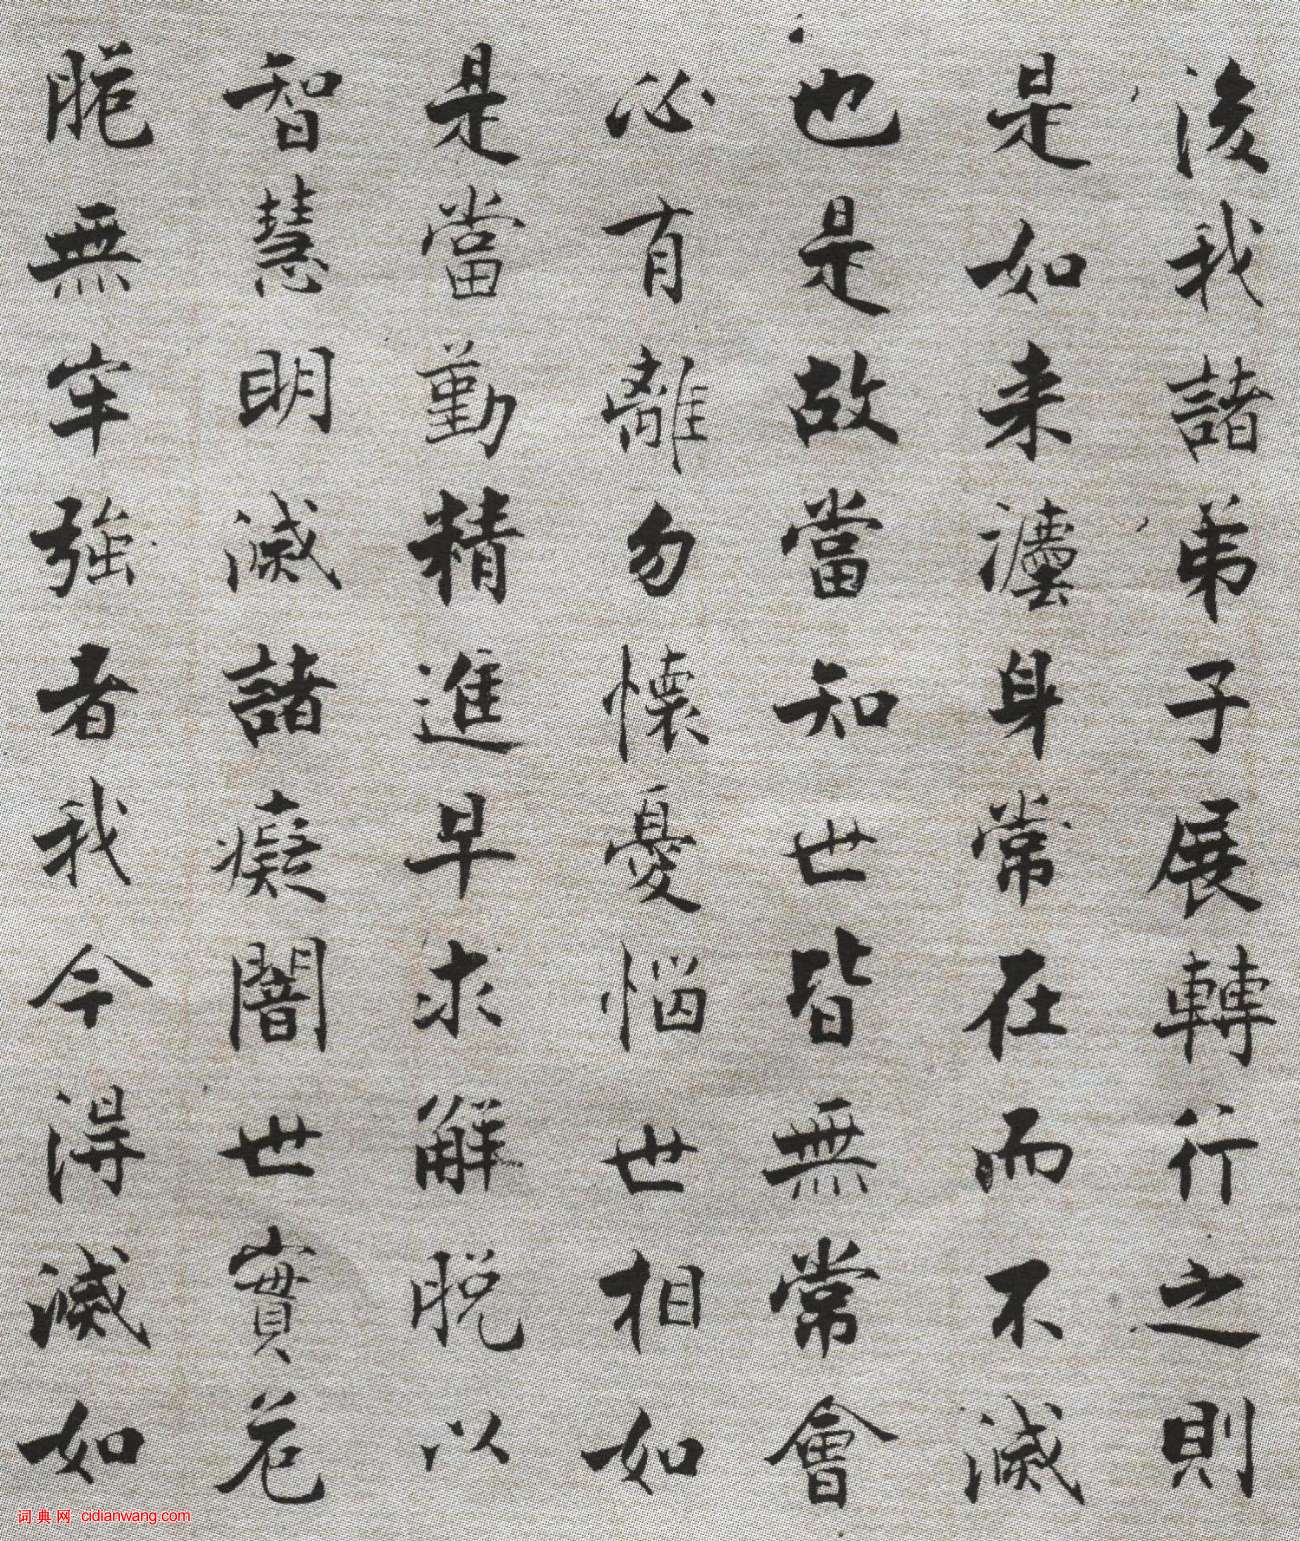 後我諸弟子展轉行之則
是如来法身常在而不滅
也是故當知世皆無常會
必有離勿懷憂惱世相如
是當勤精進早求解脫以
智慧明滅諸癡闇世實危
脆無牢強者我今得滅如
词典网 cidianwang.com